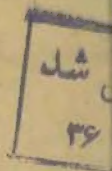 شد
۳۶